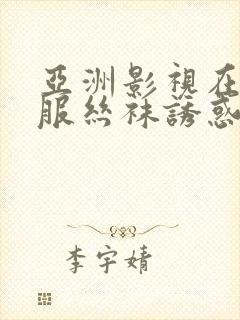 亞洲影視在
服絲袜誘惑
李宇婧